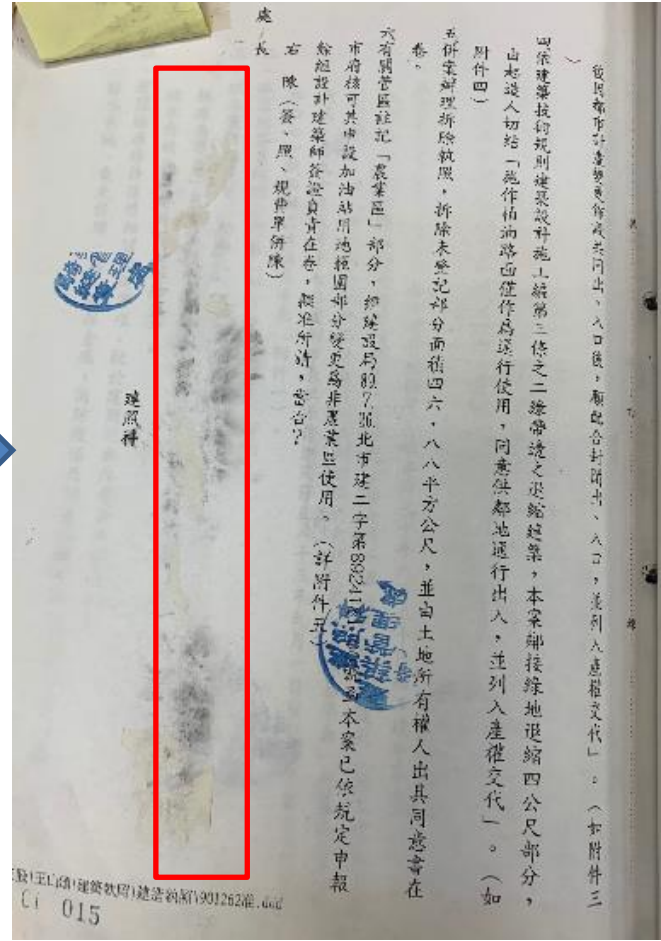 後因都市計畫變更修設共同出、入口後，願配合封閉出、入口，並列入產權交代」。（如附件三
）
四依建築技術規則建築設計施工編第三條之二臨帶邊之退縮建築，本案鄰接綠地退縮四公尺部分，
由起造人切結「施作柏油路面僅作為通行使用，同意供鄰地通行出入，並列入產權交代」。（如
附件四）
五併案辦理拆除執照，拆除未登記部分面積四六．八八平方公尺，並由土地所有權人出具同意書在
卷。
六有關管區註記「農業區」部分，經建設局89.7.26.北市建二字第892412
市府核可其申設加油站用地範圍部分變更為非農業區使用。（詳附件五）本案已依規定申報
餘經設計建築師簽證負責在卷，擬准所請，當否？
右　陳（簽、照、規費單併陳）
處　長
建照科
901262准.doc
015